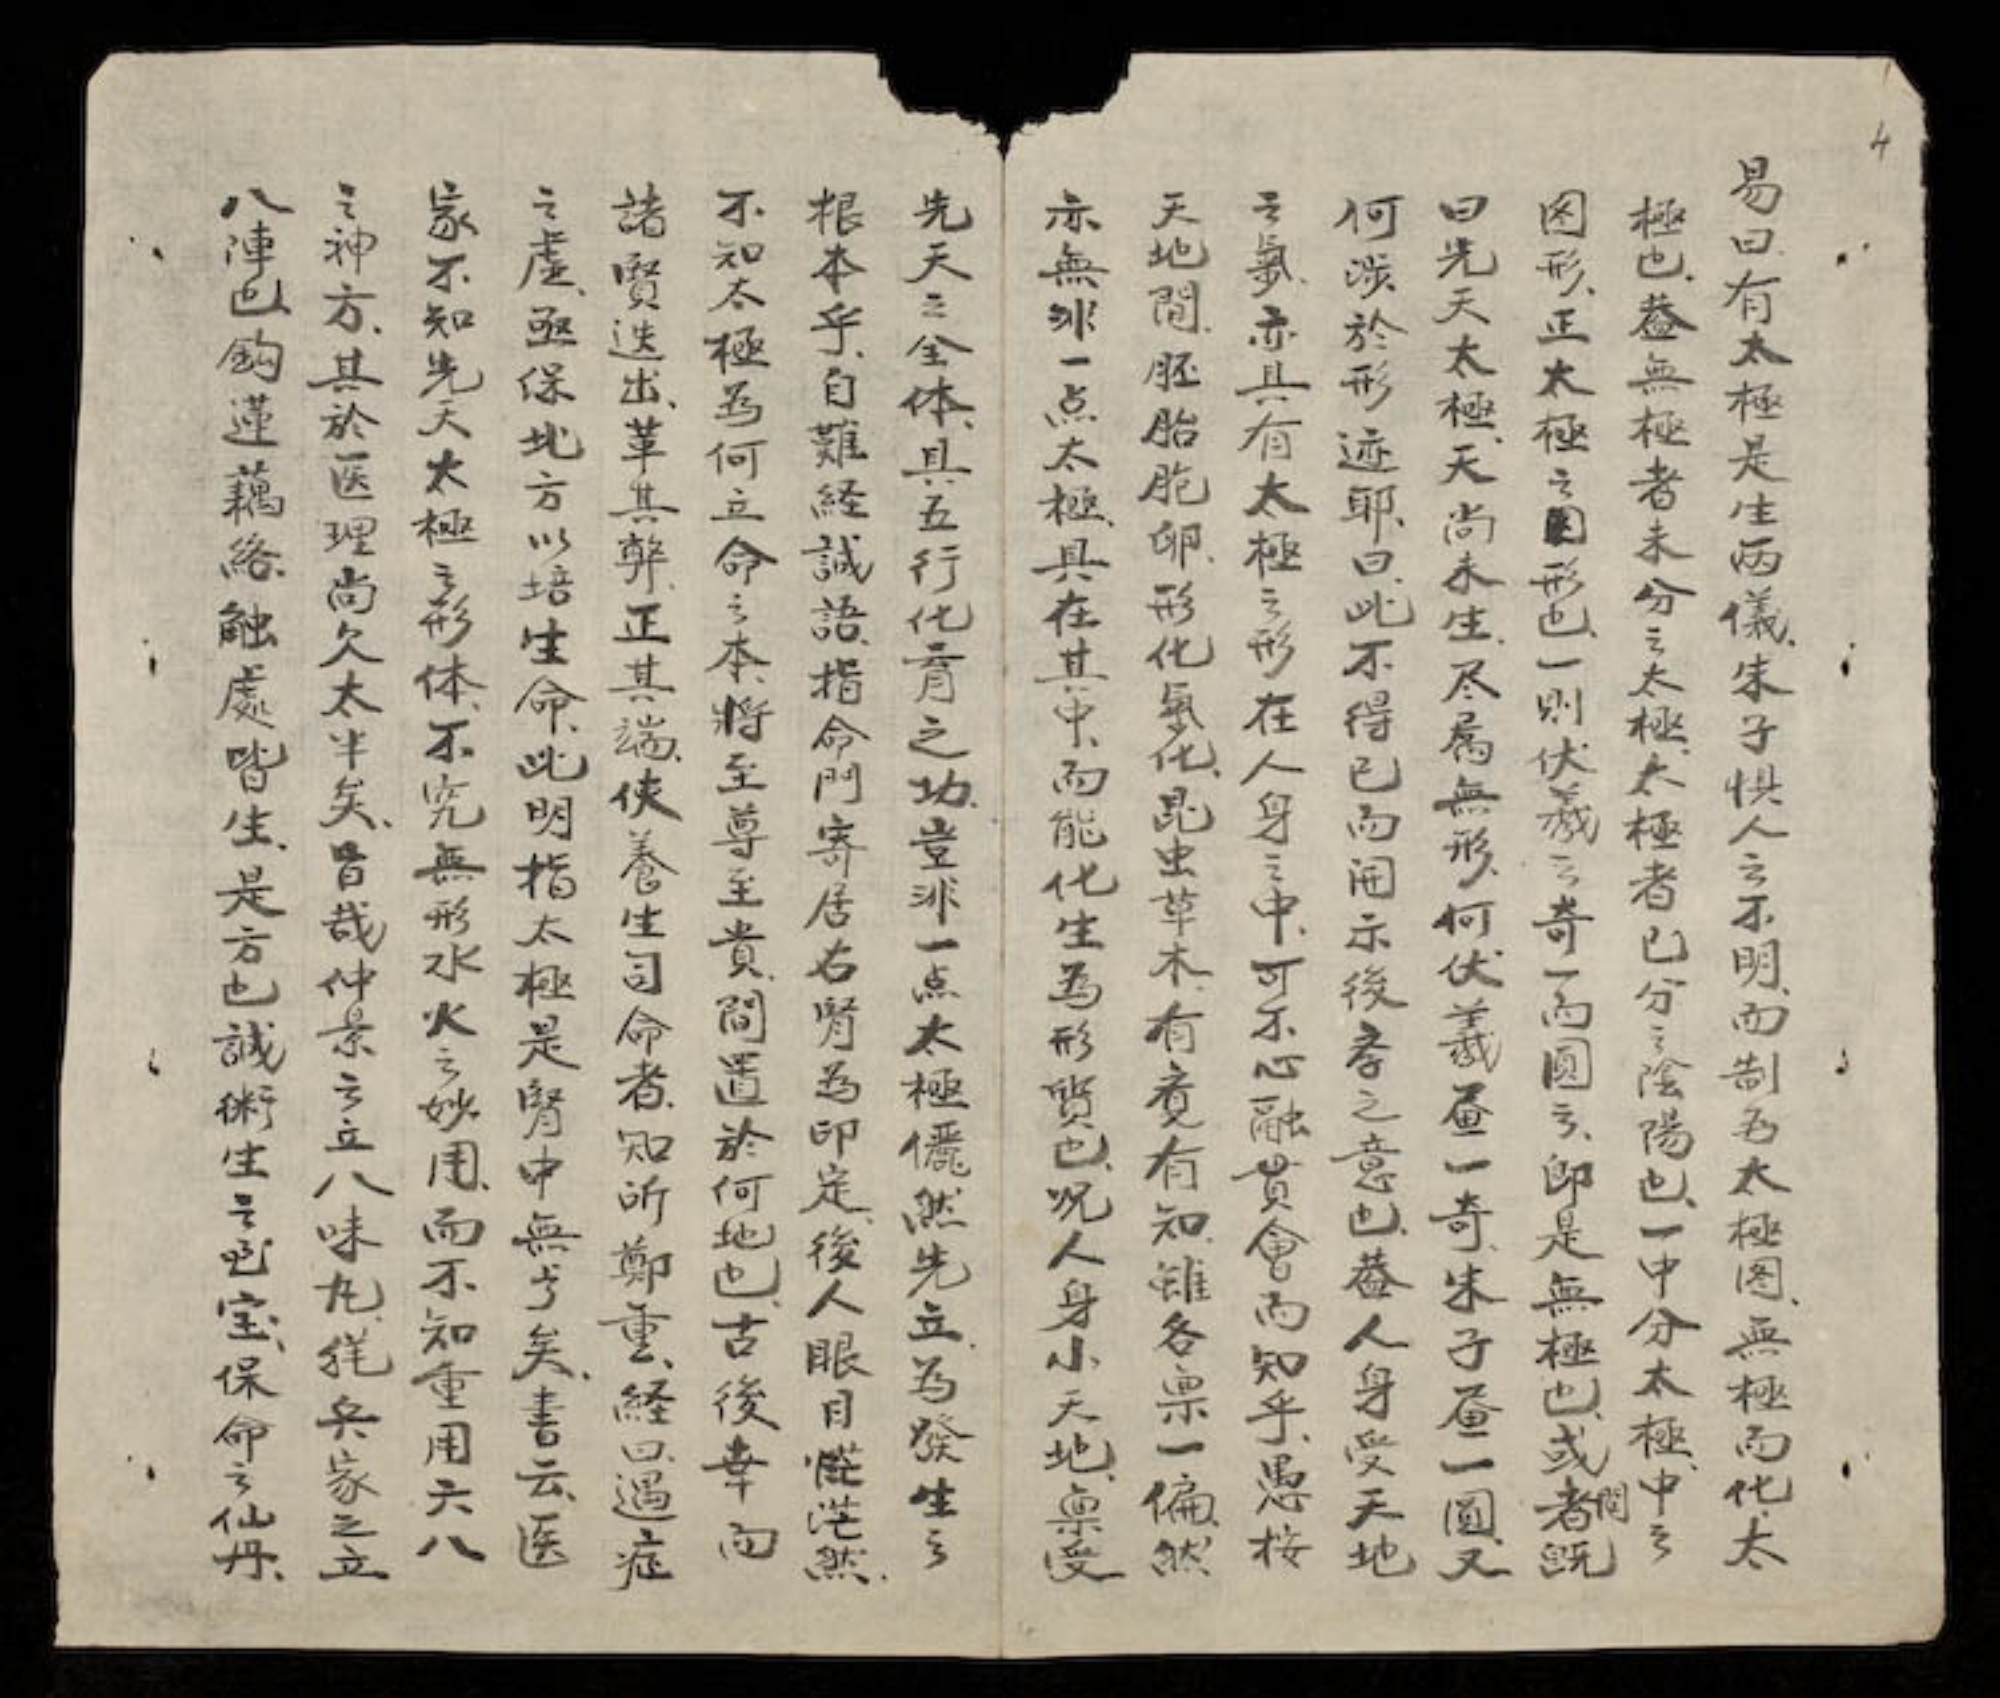 4
易曰有太極是生兩儀、朱子惧人之不明、而制为太極图、無極而化、太
極也、蓋無極者未分之太極、太極者已分之陰陽也、一中分太極、中之
图形、正太極之图形也、一則伏羲之奇一而圆之、即是無極也、或者問既
曰先天太極、天尚未生、尽属無形、何伏羲畫一奇、朱子畫一圓、又
何涉於形迹耶、曰、此不得已而開示後斈之意也、蓋人身受天地
之氣、亦具有太極之形在人身之中、可不心融貫會而知乎、愚按
天地間、胚胎胞卵、形化氣化、昆虫草木、有竟有知、雖各禀一偏、然
亦無非一点太極、具在其中、而能化生為形質也、况人身小天地、禀受
先天之全体、具五行化育之功、豈非一点太極儼然先立、為發生之
根本乎、自難経誠語、指命門寄居右腎為印定、後人眼目茫茫然、
不知太極為何立命之本、將至尊至貴、間置於何地也、古後幸而
諸賢迭出、革其弊、正其端、使養生司命者、知所鄭重、経曰、遇症
之虚、亟保北方以培生命、此明指太極是腎中無疑矣、書云、医
家不知先天太極之形体、不究無形水火之妙用、而不知重用六八
之神方、其於医理尚欠太半矣、旨哉仲景之立八味丸、犹兵家之立
八陣也、鈎蓮藕絡、触處皆生、是方也誠術生之宝、保命之仙丹、